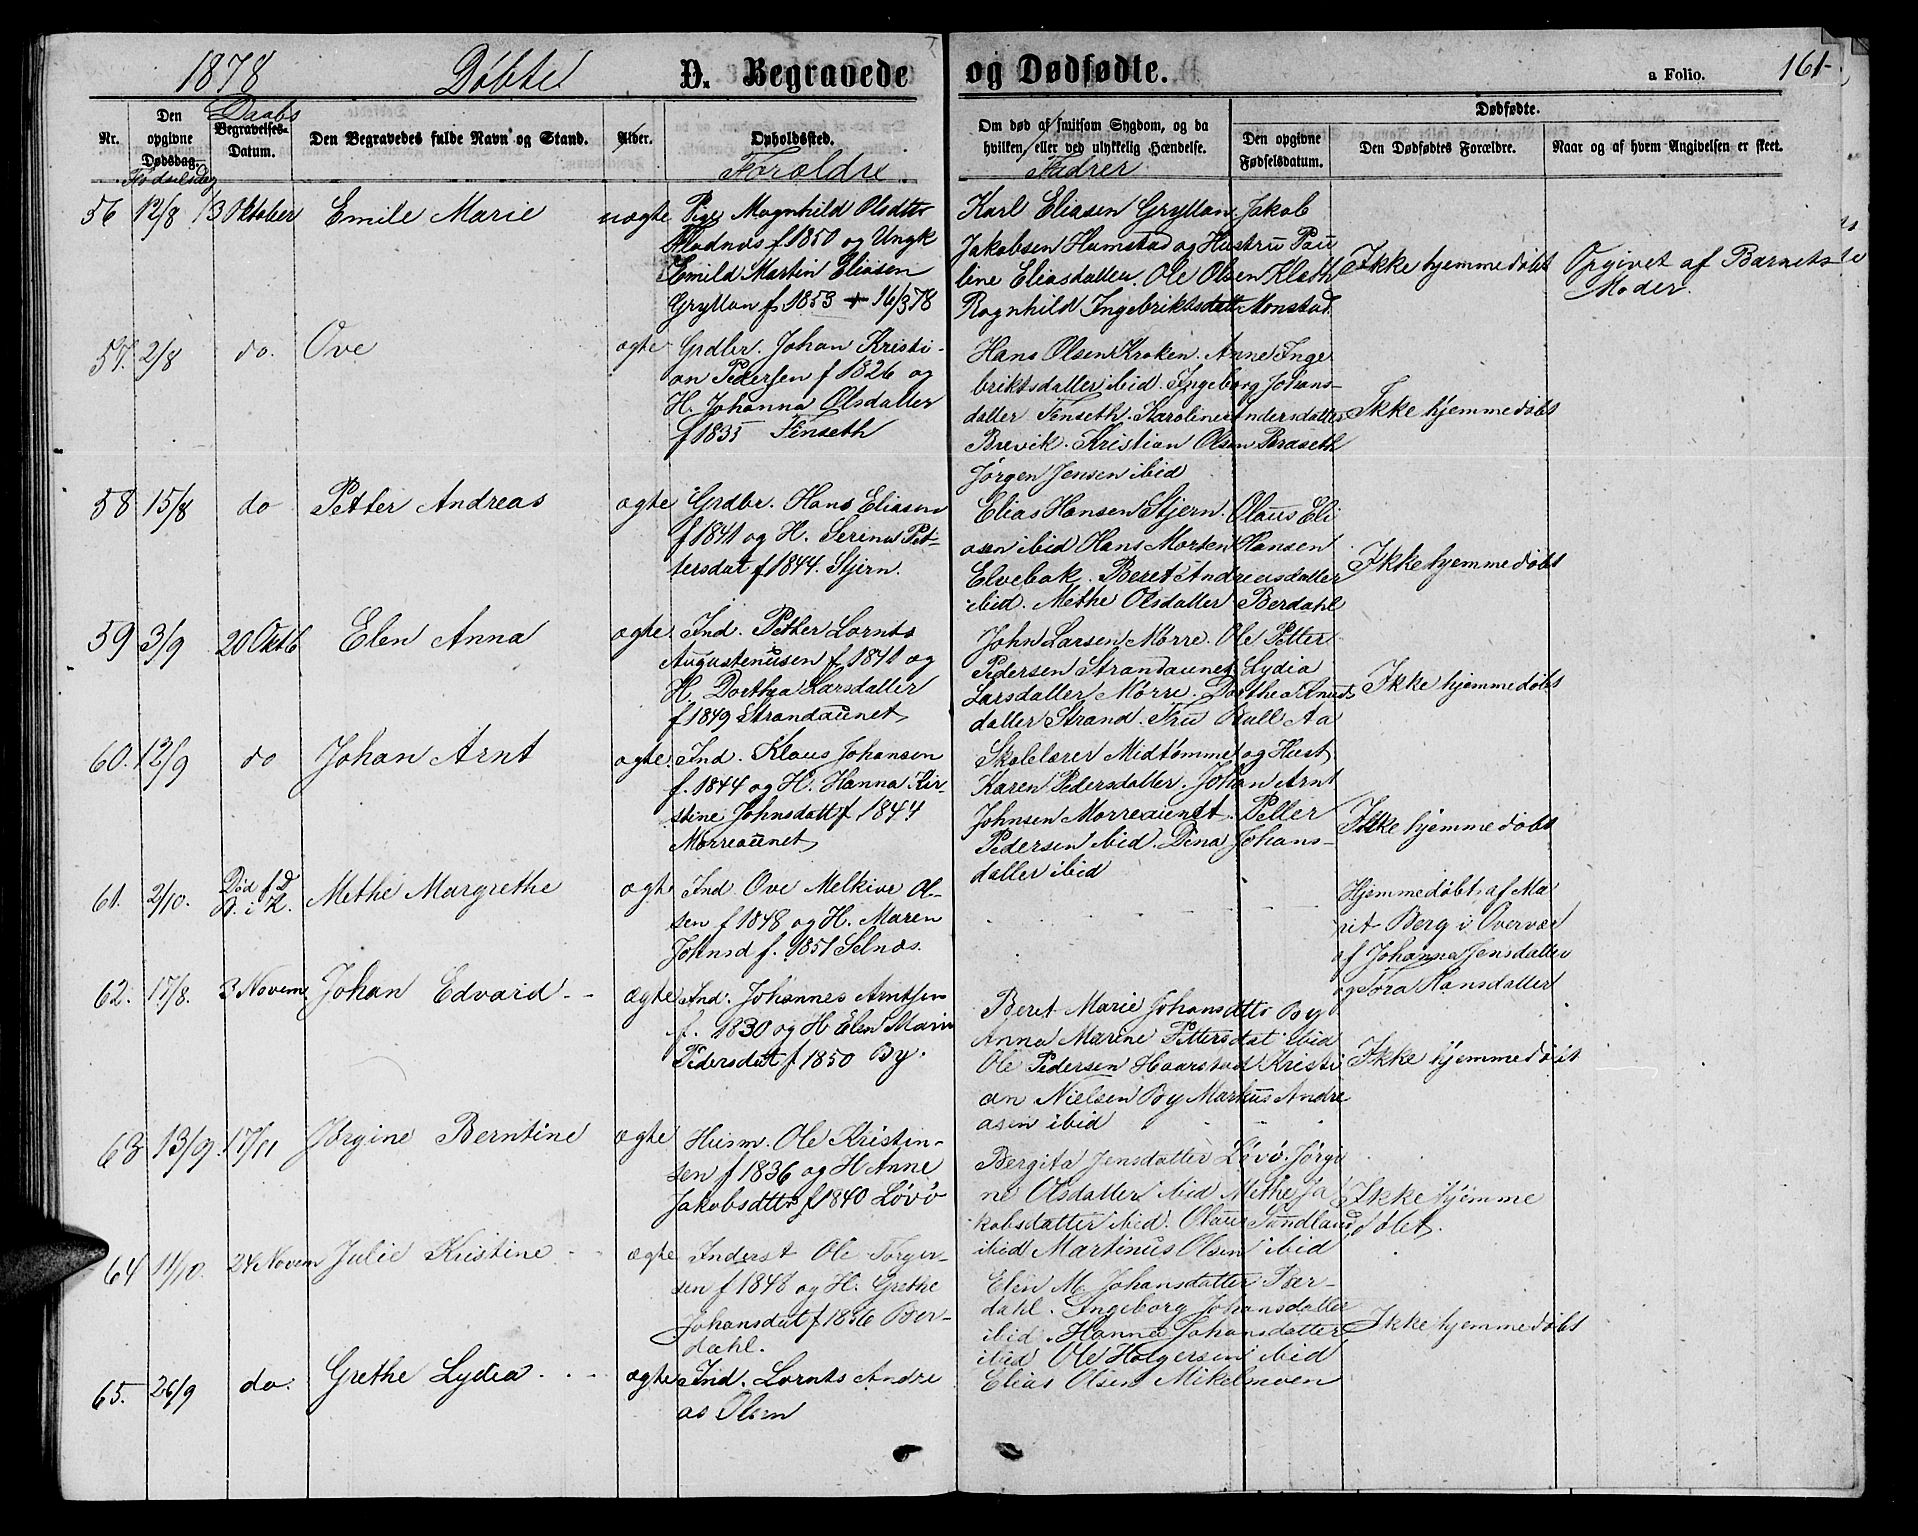 1878 Døbte D. Begravede og Dødfødte. a Folio. 161-
Nr.
Den opgivne Dødsdag. Fødselsdag
Daabs Begravelses-Datum.
Den Begravedes fulde Navn og Stand.
Alder.
Opholdssted. Forældre
Om død af smitsom Sygdom, og da
hvilken, eller ved ulykkelig Hændelse.
Fadrer
Dødfødte.
Den opgivne Fødselsdatum.
Den Dødfødtes Forældre.
Naar og af hvem Angivelsen er skeet.
56 12/8 13 Oktober Emile Marie uægte
Pige Magnhild Olsdtr
Flodnes f 1850 og Ungk
Emild Martin Eliasen
Gryttan f 1853 + 16/3 78
Karl Eliasen Gryttan. Jakob
Jakobsen Humstad og Hustru Pau
line Eliasdatter. Ole Olsen Kleth
Ragnhild Ingebriktsdatt Monstad
Ikke hjemmedøbt
Opgivet af Barnets
Moder.
57. 2/8 do. Ove ægte
Grdbr. Johan Kristi-
an Pedersen f 1826 og
H. Johanna Olsdatter
f 1835 Finseth
Hans Olsen Kroken. Anne Inge
briktsdatter ibid. Ingeborg Johans-
datter Finseth. Karoline Andersdatter
Brevik. Kristian Olsen
Jørgen Jensen ibid
Ikke hjemmedøbt
58 15/8 do Petter Andreas ægte
Grdbr. Hans Eliasen
f 1841 og H. Serina Pet-
tersdat f 1844. Stjern.
Elias Hansen Stjern. Olaus Eli
asen ibid Hans Morten Hansen
Elvebak. Beret Andreasdatter
ibid. Methe Olsdatter Berdahl
Ikke hjemmedøbt
59 3/9 20 Oktb Elen Anna ægte
Ind. Petter Lornts
Augustinusen f 1841 og
H. Dorthea Larsdatter
f 1849 Strandaunet
John Larsen Mørre. Ole Petter
Pedersen Strandaunet Lydia
Larsdatter Mørre. Dorthea Knuds
datter Strand. Fru Bull Aa
Ikke hjemmedøbt
60. 12/9 do Johan Arnt ægte.
Ind. Klaus Johansen
f. 1844 og H. Hanna Kir-
stine Johnsdatt f 1844
Morreaunet
Skolelærer Midtømme og Hust
Karen Pedersdatter. Johan Arnt
Johnsen Morreaunet. Petter
Pedersen ibid. Dina Johans-
datter ibid
Ikke hjemmedøbt
61. 2/10. Død f D
B. i K. Methe Margrethe ægte
Ind Ove Melkior Ol-
sen f 1848 og H. Maren
Johnsd f. 1851 Selnæs.
Hjemmedøbt af Ma
rit Berg i Overvær
af Johanna Jensdatter
og Tora Hansdatter
62. 17/8. 3 Novem. Johan Edvard - - ægte
Ind. Johannes Arntsen
f. 1830 og H Elen Marie
Pedersdat f 1850 By.
Beret Marie Johansdtr By
Anna Marine Pettersdat ibid
Ole Pedersen Haarstad Kristi
an Nielsen By Markus Andre
asen ibid
Ikke hjemmedøbt
63 13/9. 17/11 Jørgine Berntine ægte
Husm. Ole Kristin-
sen f 1836 og H Anne
Jakobsdtr f 1840 Løvø
Bergita Jensdatter Løvø. Jørgi
ne Olsdatter ibid Methe Ja
kobsdatter ibid. Olaus Sundland
ibid Martinus Olsen ibid
Ikke hjemme
døbt.
64 11/10. 24 Novem Julie Kristine - ægte
Inderst Ole Torger-
sen f 1848 og H. Grethe
Johansdat f 1856 Ber-
dahl.
Elen M. Johansdatter Ber-
dahl. Ingeborg Johansdatter
ibid. Hanna Johansdatter
ibid Ole Holgersen ibid
Ikke hjemmedøbt
65. 26/9 do. Grethe Lydia. - - ægte
Ind. Lornts Andre
as Olsen
Elias Olsen Mikelmoen